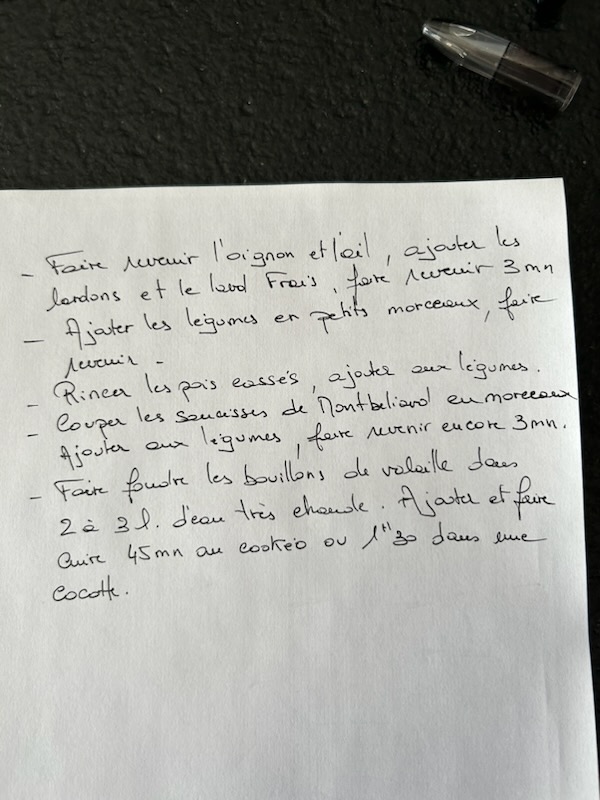 - Faire revenir l'oignon et l'ail, ajouter les
lardons et le lard Frais, faire revenir 3mn
- Ajouter les légumes en petits morceaux, faire
revenir -
- Rincer les pois cassés, ajouter aux légumes.
- Couper les saucisses de Montbeliard en morceaux
Ajouter aux légumes, faire revenir encore 3mn.
- Faire fondre les bouillons de volaille dans
2 à 3 l. d'eau très chaude. Ajouter et faire
cuire 45mn au cookéo ou 1H30 dans une
cocotte.